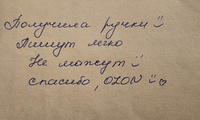 Получила ручки :)
Пишут легко
Не мажут :)
спасибо, OZON :)♡